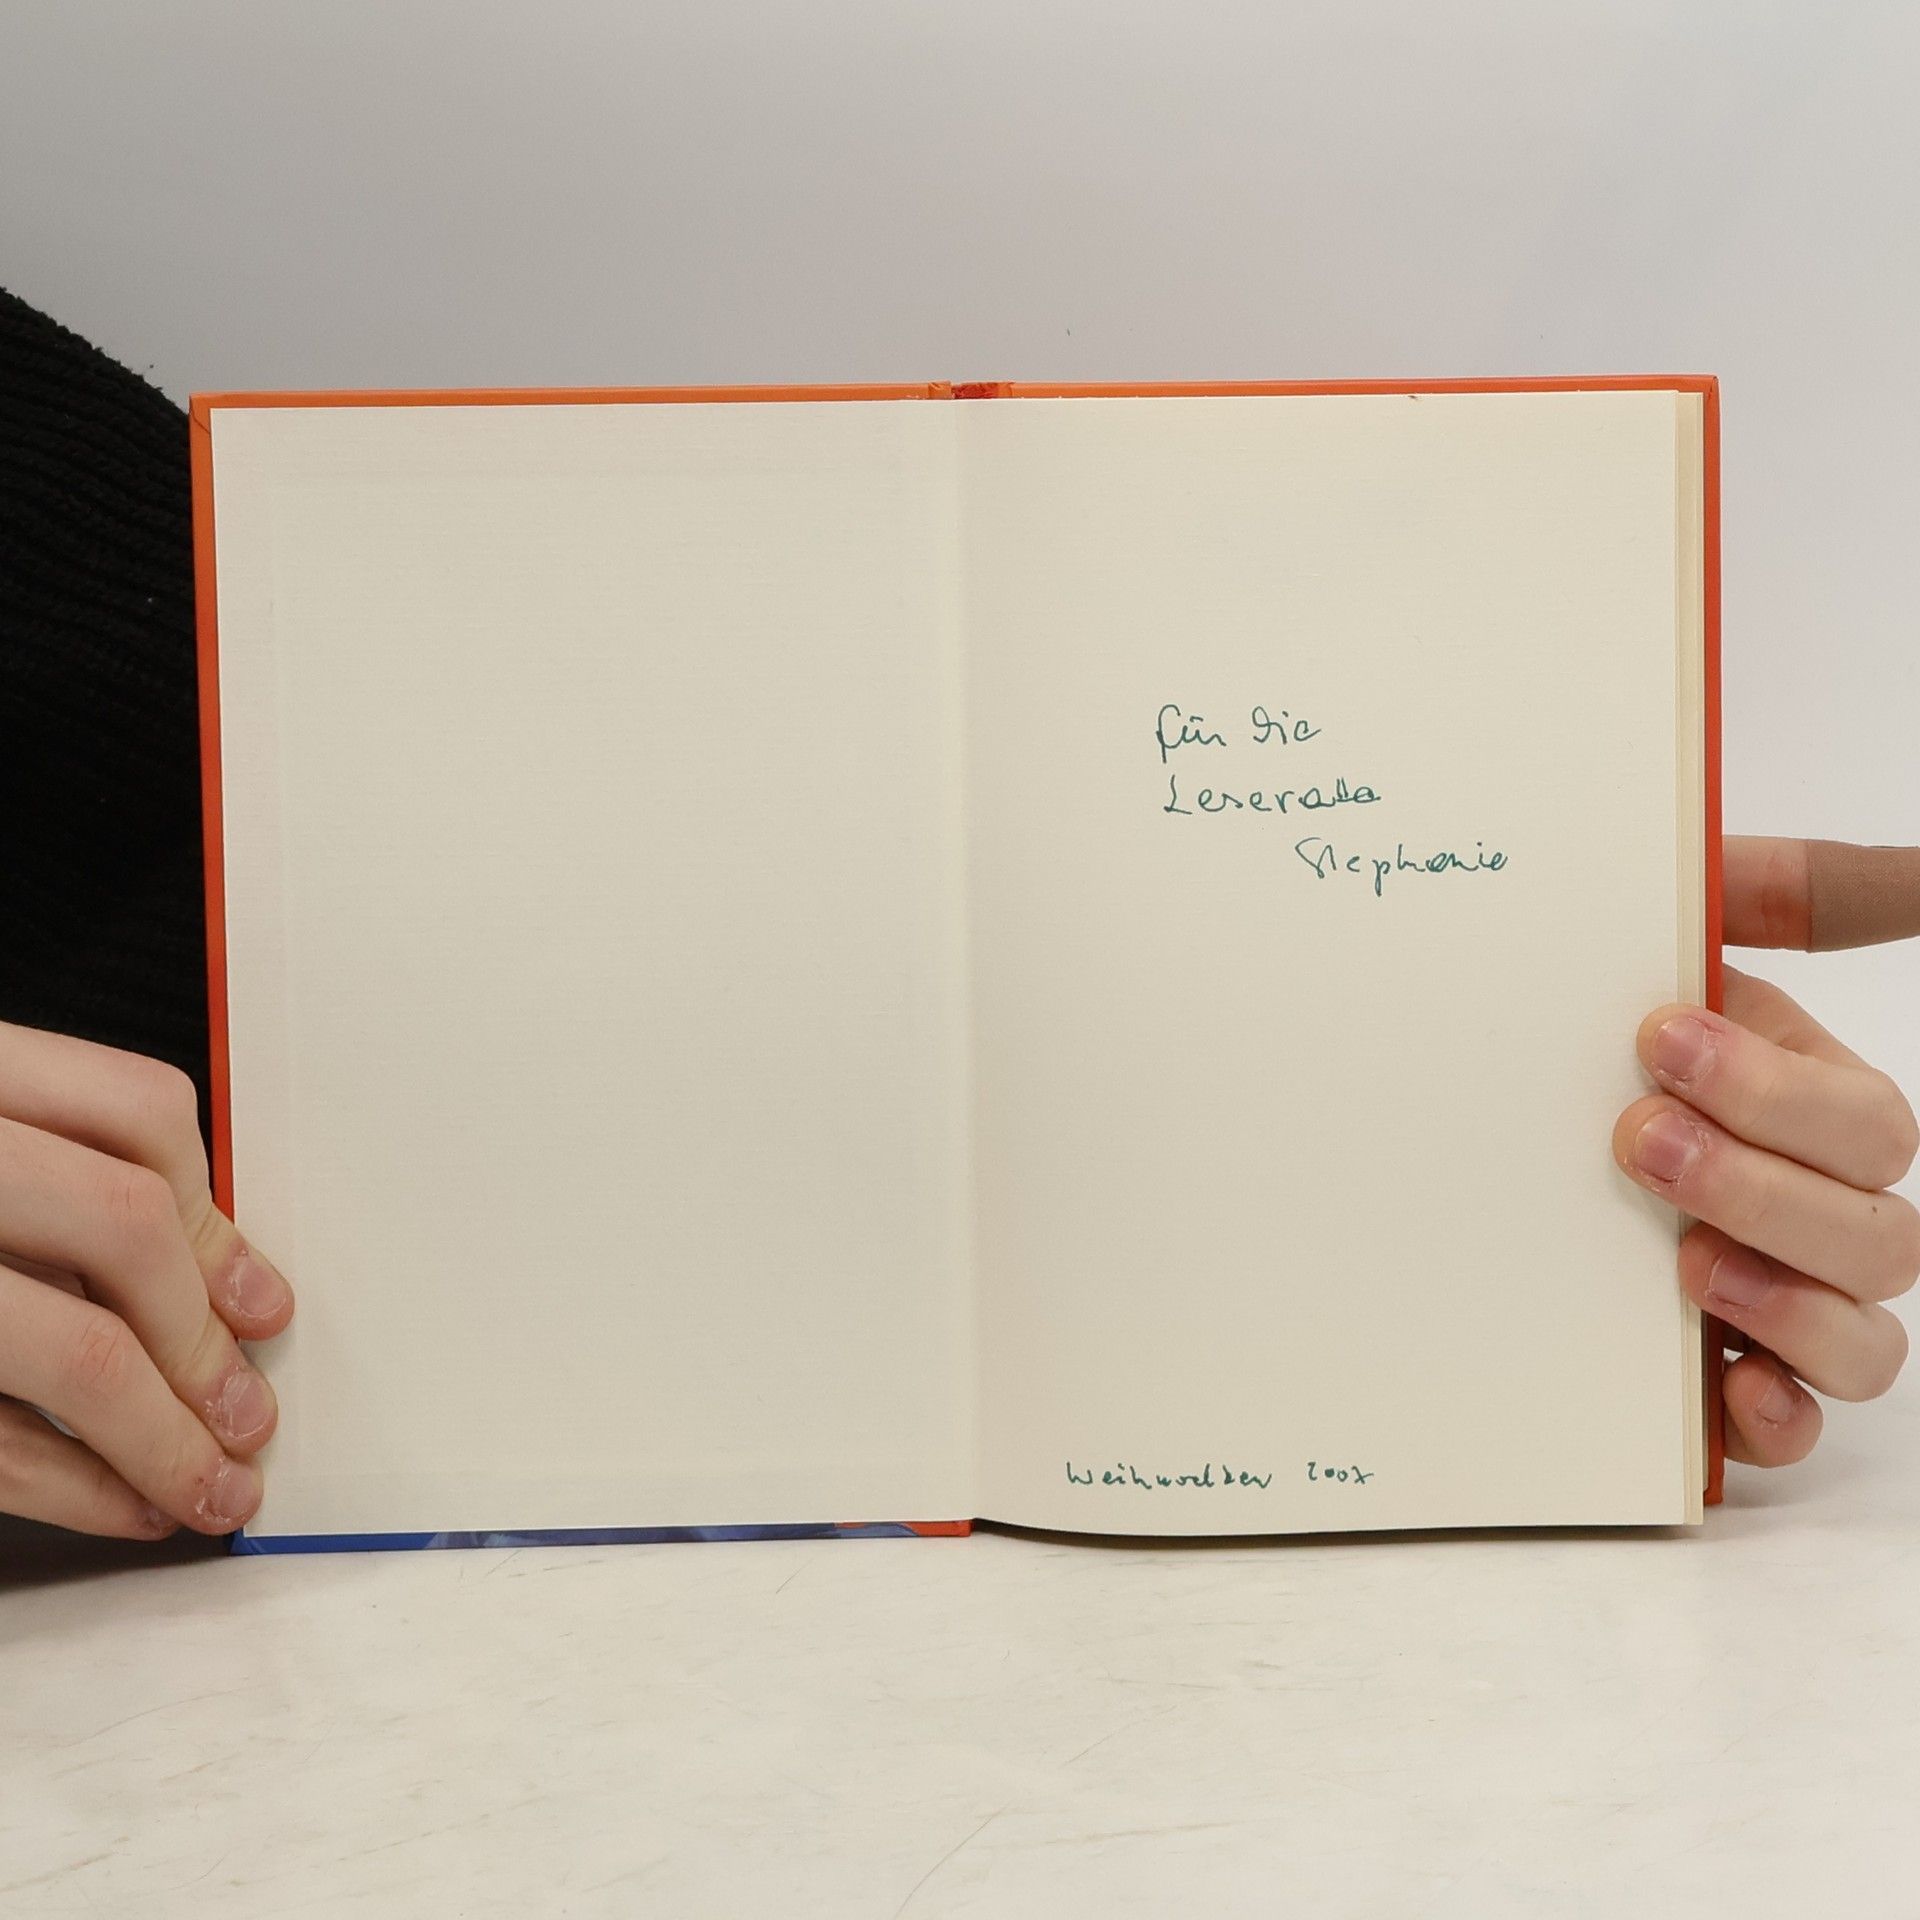 für die
Leseratte
Stephanie
Weihnachten 2007